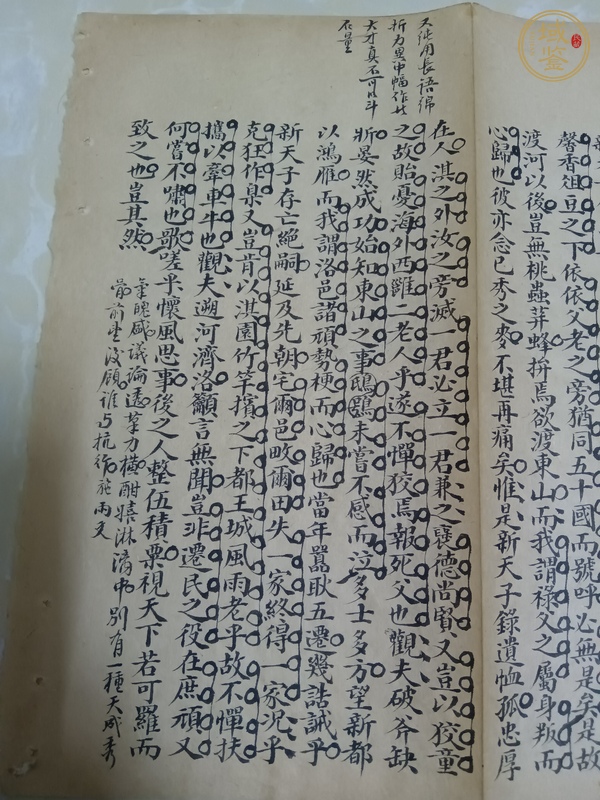 馨香俎豆之下依依父老之旁猶同五十國而號呼必無是矣是故
渡河以後豈無桃蟲荓蜂拚焉欲渡東山而我謂祿父之屬身叛而
心歸也彼亦念已秀之麥不堪再痛矣惟是新天子錄遺恤孤忠厚
又純用長語綿
折為異中幅作廿
大才真不可以斗
石量
在人淇之外汝之旁滅一君必立一君兼之襄德尚賢又豈以狡童
之故貽憂海外西雝二老人乎遂不憚狡焉報死父也觀夫破斧缺
斨晏然成功始知東山之事鴟鴞未嘗不感而泣多士多方望新都
以鴻雁而我謂洛邑諸頑勢梗而心歸也當年囂耿五遷幾誥誡乎
新天子存亡絕嗣延及先朝宅爾邑畋爾田失一家終得一家況乎
克狂作臬又豈肯以淇園竹竿擯之下都王城風雨老乎故不憚扶
攜以牽車牛也觀夫遡河濟洛籲言無聞豈非遷民之役在庶頑又
何嘗不嘯也歌嗟乎懷風思事後之人整伍積粟視天下若可羅而
致之也豈其然
氣魄醎議論透筆力橫酣嬉淋漓中別有一種天成秀
前坐後顧誰与抗行